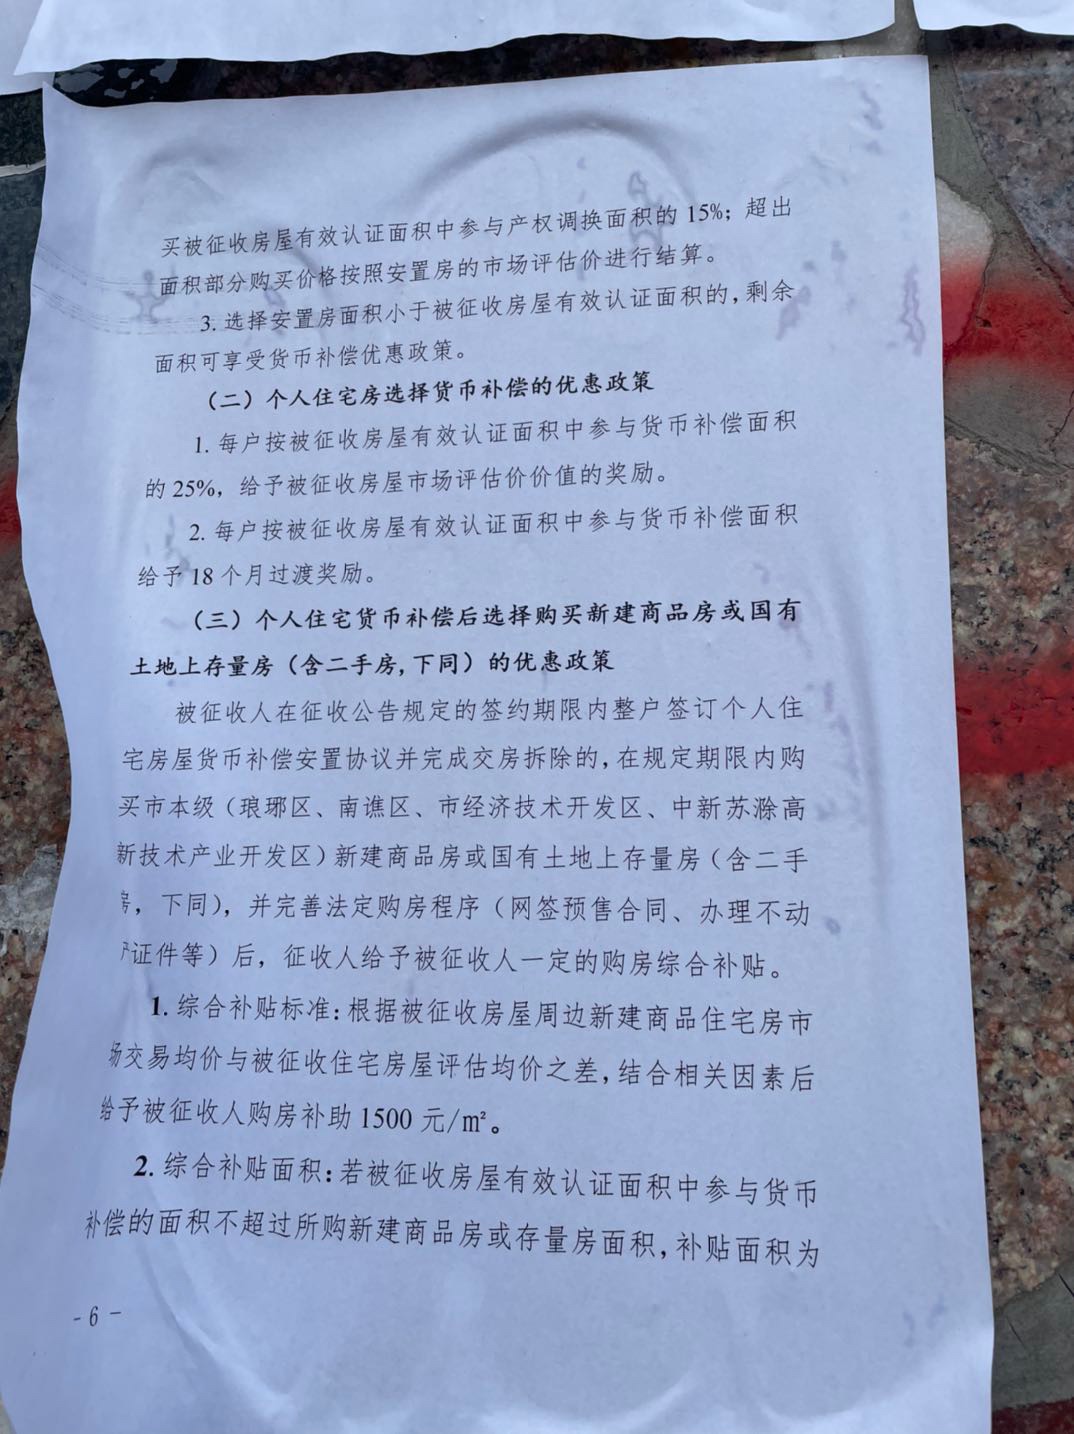 买被征收房屋有效认证面积中参与产权调换面积的 15%；超出
面积部分购买价格按照安置房的市场评估价进行结算。
3. 选择安置房面积小于被征收房屋有效认证面积的，剩余
面积可享受货币补偿优惠政策。
（二）个人住宅房选择货币补偿的优惠政策
1. 每户按被征收房屋有效认证面积中参与货币补偿面积
的 25%，给予被征收房屋市场评估价价值的奖励。
2. 每户按被征收房屋有效认证面积中参与货币补偿面积
给予 18 个月过渡奖励。
（三）个人住宅货币补偿后选择购买新建商品房或国有
土地上存量房（含二手房，下同）的优惠政策
被征收人在征收公告规定的签约期限内整户签订个人住
宅房屋货币补偿安置协议并完成交房拆除的，在规定期限内购
买市本级（琅琊区、南谯区、市经济技术开发区、中新苏滁高
新技术产业开发区）新建商品房或国有土地上存量房（含二手
房，下同），并完善法定购房程序（网签预售合同、办理不动
产证件等）后，征收人给予被征收人一定的购房综合补贴。
1. 综合补贴标准：根据被征收房屋周边新建商品住宅房市
场交易均价与被征收住宅房屋评估均价之差，结合相关因素后
给予被征收人购房补助 1500 元/㎡。
2. 综合补贴面积：若被征收房屋有效认证面积中参与货币
补偿的面积不超过所购新建商品房或存量房面积，补贴面积为
- 6 -